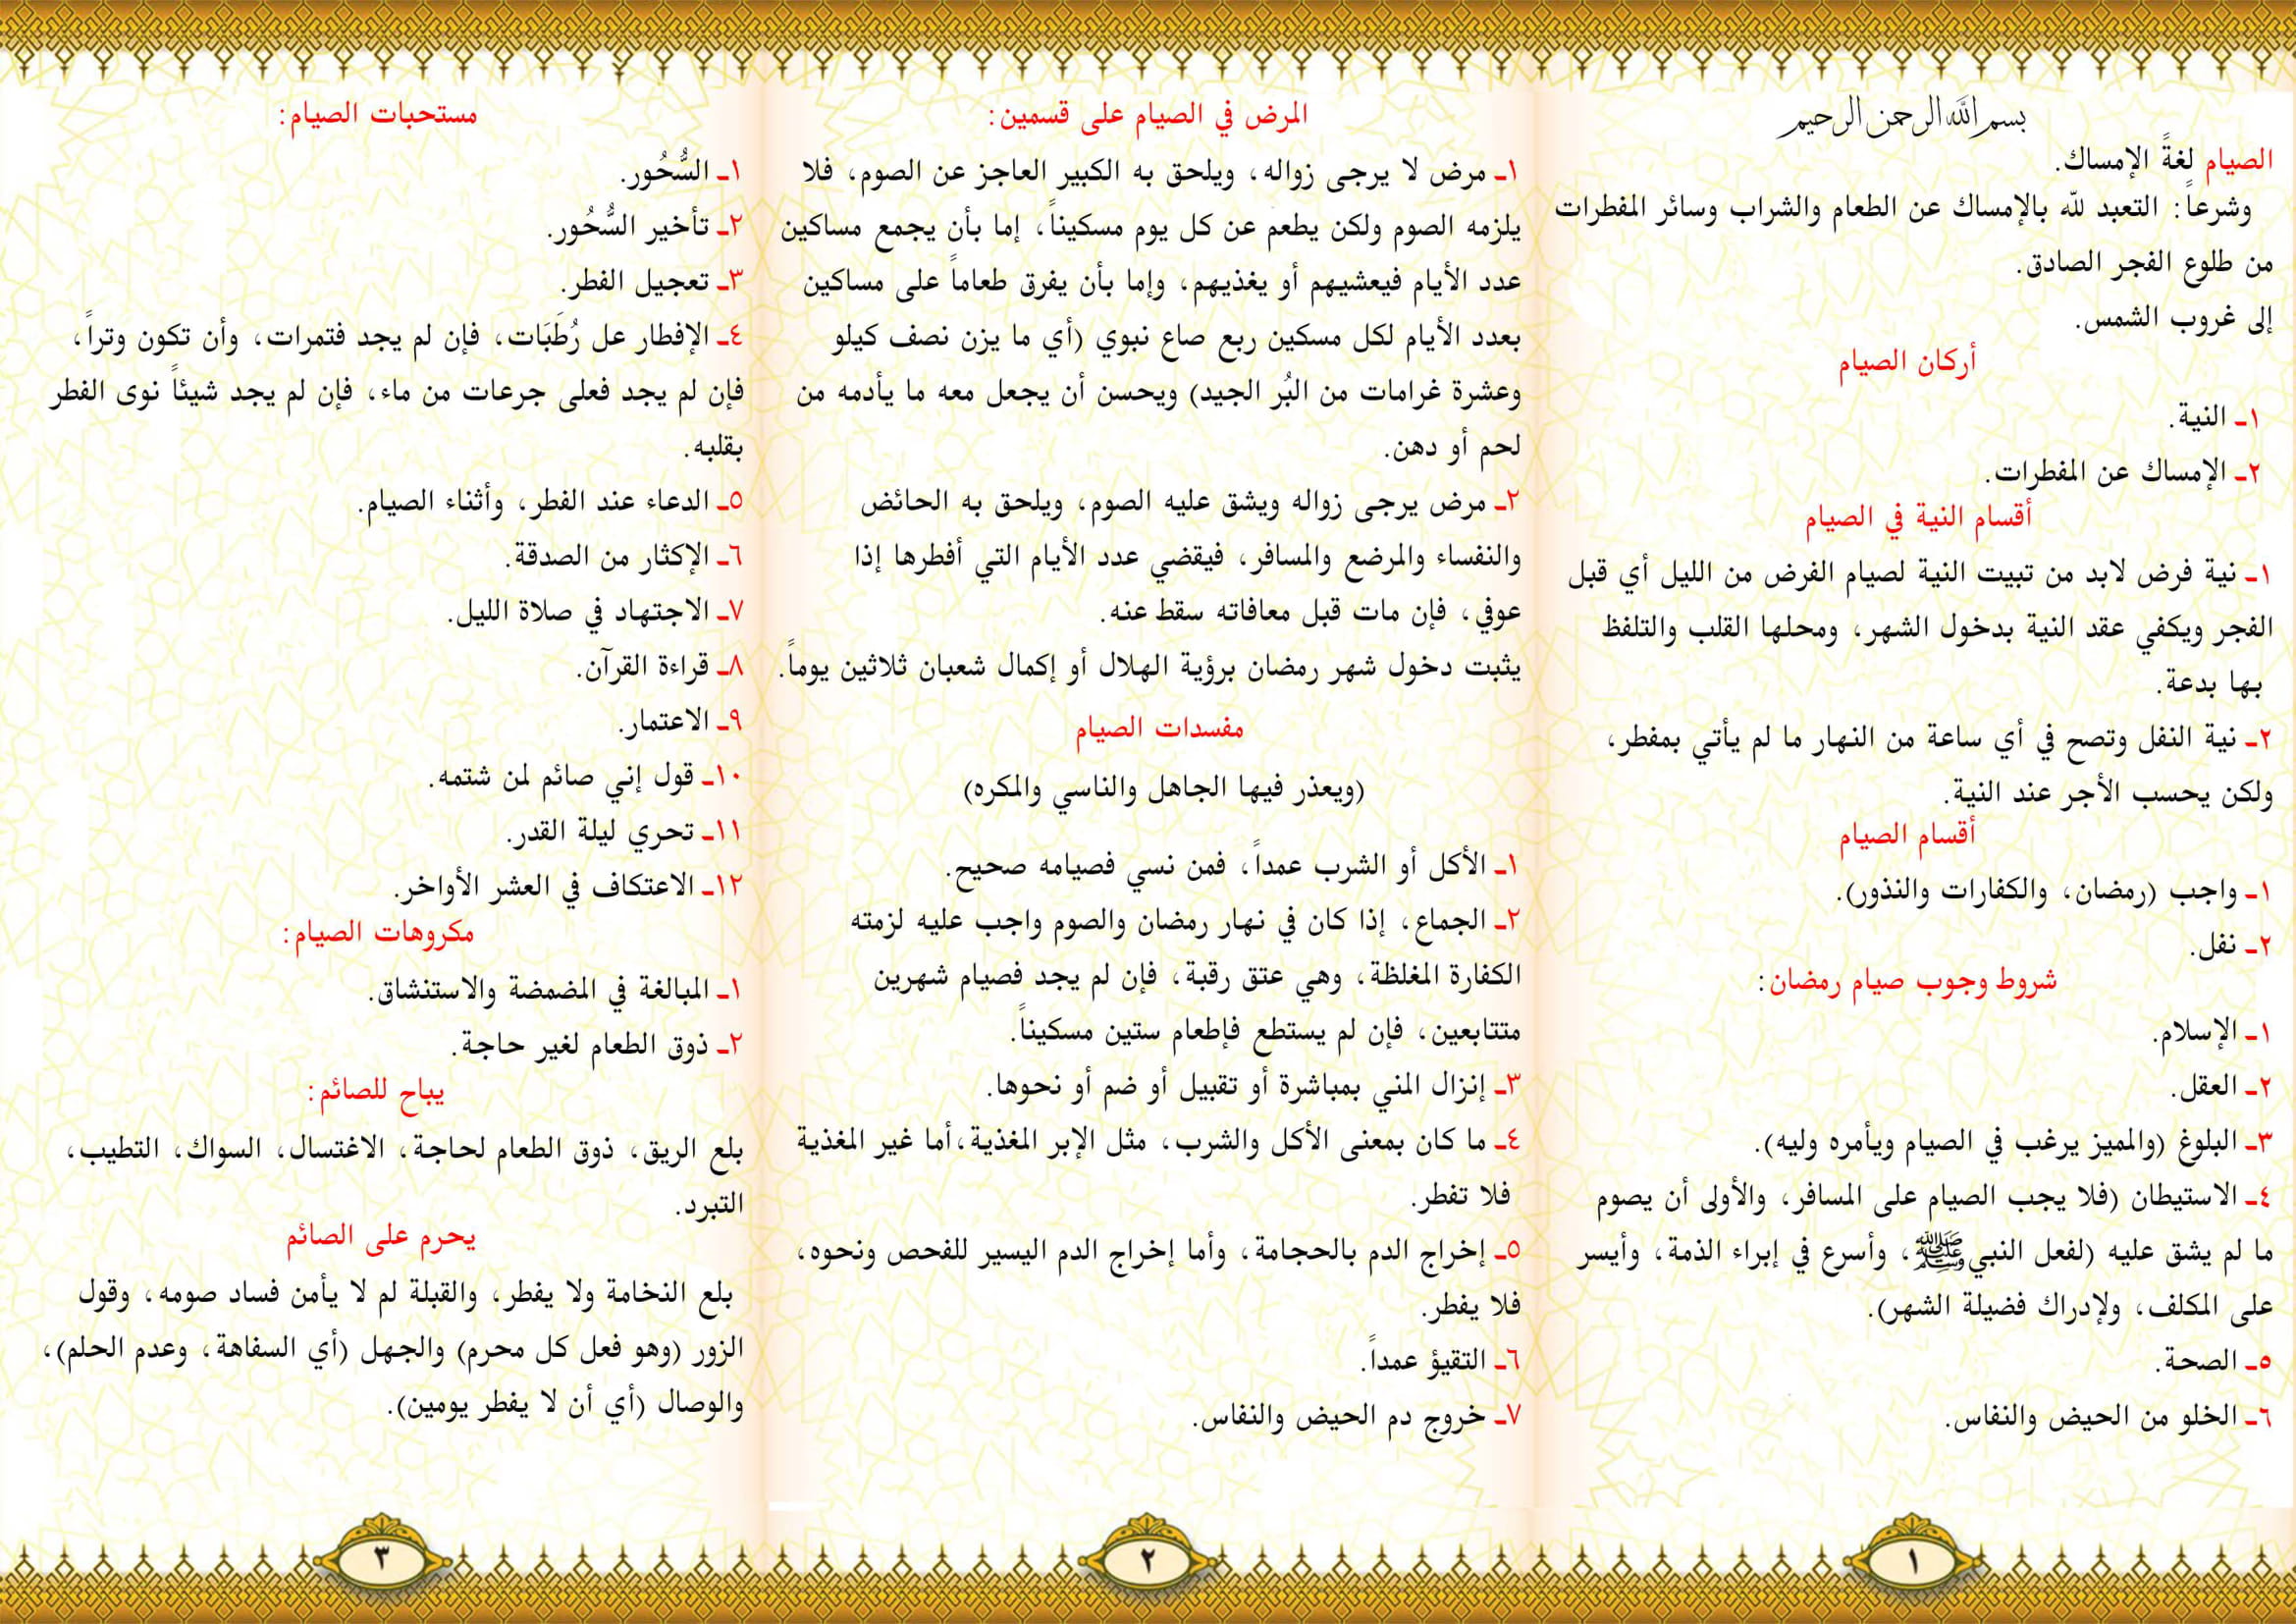 بسم الله الرحمن الرحيم
الصيام لغةً الإمساك.
وشرعاً: التعبد لله بالإمساك عن الطعام والشراب وسائر المفطرات
من طلوع الفجر الصادق.
إلى غروب الشمس.
أركان الصيام
١ـ النية.
٢ـ الإمساك عن المفطرات.
أقسام النية في الصيام
١ـ نية فرض لابد من تبيت النية لصيام الفرض من الليل أي قبل
الفجر ويكفي عقد النية بدخول الشهر، ومحلها القلب والتلفظ
بها بدعة.
٢ـ نية النفل وتصح في أي ساعة من النهار ما لم يأتي بمفطر،
ولكن يحسب الأجر عند النية.
أقسام الصيام
١ـ واجب (رمضان، والكفارات والنذور).
٢ـ نفل.
شروط وجوب صيام رمضان:
١ـ الإسلام.
٢ـ العقل.
٣ـ البلوغ (والمميز يرغب في الصيام ويأمره وليه).
٤ـ الاستيطان (فلا يجب الصيام على المسافر، والأولى أن يصوم
ما لم يشق عليه (لفعل النبي ﷺ، وأسرع في إبراء الذمة، وأيسر
على المكلف، ولإدراك فضيلة الشهر).
٥ـ الصحة.
٦ـ الخلو من الحيض والنفاس.
١
المرض في الصيام على قسمين:
١ـ مرض لا يرجى زواله، ويلحق به الكبير العاجز عن الصوم، فلا
يلزمه الصوم ولكن يطعم عن كل يوم مسكيناً، إما بأن يجمع مساكين
عدد الأيام فيعشيهم أو يغذيهم، وإما بأن يفرق طعاماً على مساكين
بعدد الأيام لكل مسكين ربع صاع نبوي (أي ما يزن نصف كيلو
وعشرة غرامات من البُر الجيد) ويحسن أن يجعل معه ما يأدمه من
لحم أو دهن.
٢ـ مرض يرجى زواله ويشق عليه الصوم، ويلحق به الحائض
والنفساء والمرضع والمسافر، فيقضي عدد الأيام التي أفطرها إذا
عوفي، فإن مات قبل معافاته سقط عنه.
يثبت دخول شهر رمضان برؤية الهلال أو إكمال شعبان ثلاثين يوماً.
مفسدات الصيام
(ويعذر فيها الجاهل والناسي والمكره)
١ـ الأكل أو الشرب عمداً، فمن نسي فصيامه صحيح.
٢ـ الجماع، إذا كان في نهار رمضان والصوم واجب عليه لزمته
الكفارة المغلظة، وهي عتق رقبة، فإن لم يجد فصيام شهرين
متتابعين، فإن لم يستطع فإطعام ستين مسكيناً.
٣ـ إنزال المني بمباشرة أو تقبيل أو ضم أو نحوها.
٤ـ ما كان بمعنى الأكل والشرب، مثل الإبر المغذية،أما غير المغذية
فلا تفطر.
٥ـ إخراج الدم بالحجامة، وأما إخراج الدم اليسير للفحص ونحوه،
فلا يفطر.
٦ـ التقيؤ عمداً.
٧ـ خروج دم الحيض والنفاس.
٢
مستحبات الصيام:
١ـ السُّحُور.
٢ـ تأخير السُّحُور.
٣ـ تعجيل الفطر.
٤ـ الإفطار عل رُطَبَات، فإن لم يجد فتمرات، وأن تكون وتراً،
فإن لم يجد فعلى جرعات من ماء، فإن لم يجد شيئاً نوى الفطر
بقلبه.
٥ـ الدعاء عند الفطر، وأثناء الصيام.
٦ـ الإكثار من الصدقة.
٧ـ الاجتهاد في صلاة الليل.
٨ـ قراءة القرآن.
٩ـ الاعتمار.
١٠ـ قول إني صائم لمن شتمه.
١١ـ تحري ليلة القدر.
١٢ـ الاعتكاف في العشر الأواخر.
مكروهات الصيام:
١ـ المبالغة في المضمضة والاستنشاق.
٢ـ ذوق الطعام لغير حاجة.
يباح للصائم:
بلع الريق، ذوق الطعام لحاجة، الاغتسال، السواك، التطيب،
التبرد.
يحرم على الصائم
بلع النخامة ولا يفطر، والقبلة لم لا يأمن فساد صومه، وقول
الزور (وهو فعل كل محرم) والجهل (أي السفاهة، وعدم الحلم)،
والوصال (أي أن لا يفطر يومين).
٣